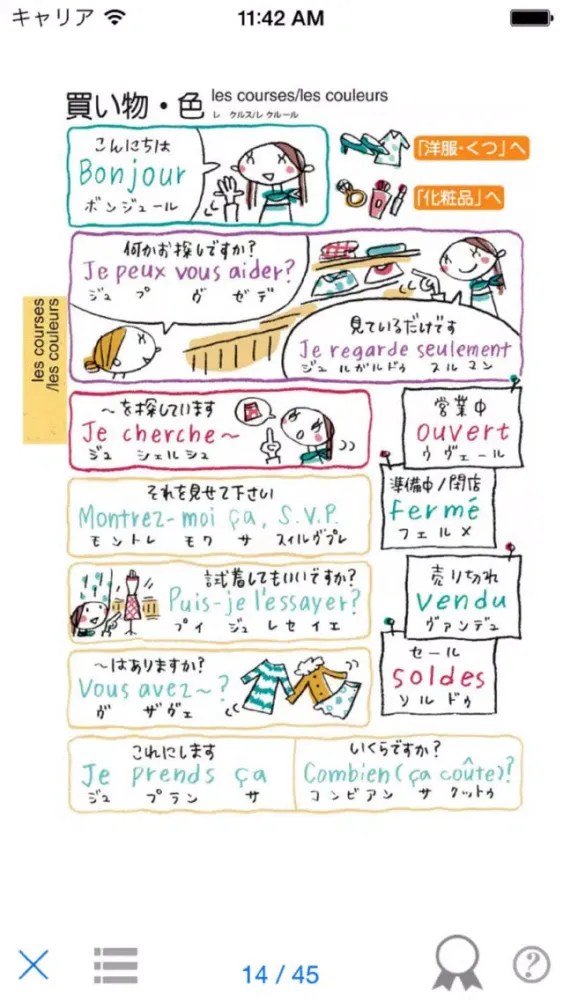 キャリア 11:42 AM
買い物・色 les courses/les couleurs
レ クルス/レ クルール
こんにちは
Bonjour
ボンジュール
「洋服・くつ」へ
「化粧品」へ
何かお探しですか?
Je peux vous aider?
ジュ プ ヴ ゼデ
見ているだけです
Je regarde seulement
ジュ ルガルドゥ スルマン
les courses
/les couleurs
〜を探しています
Je cherche〜
ジュ シェルシュ
営業中
ouvert
ウヴェール
それを見せて下さい
Montrez-moi ça, S.V.P.
モントレ モワ サ スィルヴプレ
準備中/閉店
fermé
フェルメ
試着してもいいですか?
Puis-je l'essayer?
プイ ジュ レセイエ
売りきれ
vendu
ヴァンデュ
〜はありますか?
Vous avez〜?
ヴ ザヴェ
セール
soldes
ソルドゥ
これにします
Je prends ça
ジュ プラン サ
いくらですか?
Combien (ça coûte)?
コンビアン サ クットゥ
14 / 45
?